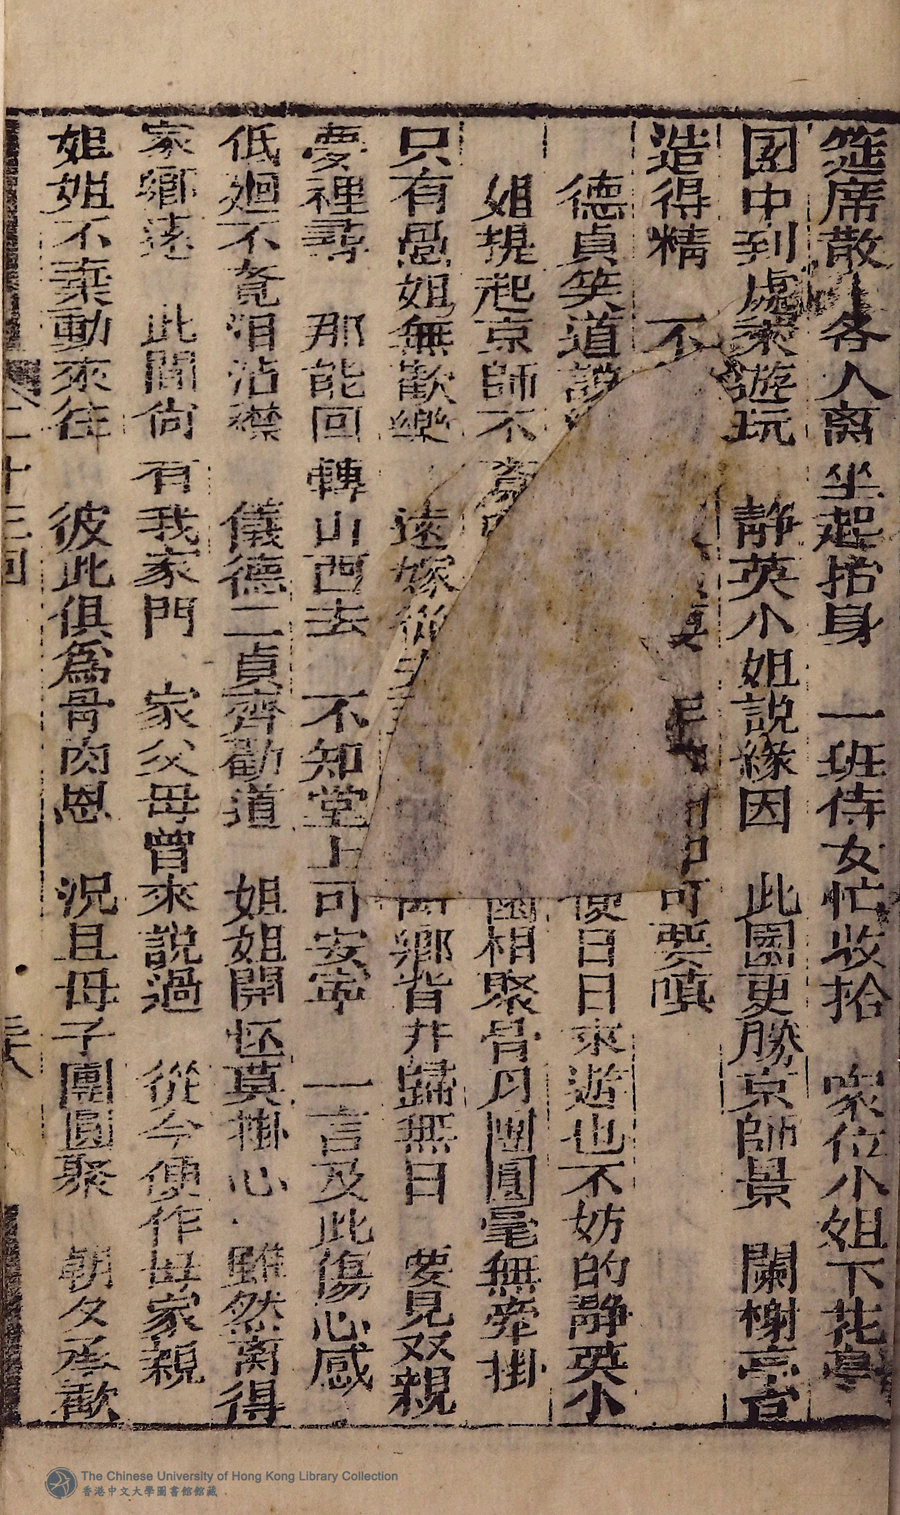 筵席散㆑各人离坐起抬身　一班侍女忙收拾　眾位小姐下花亭
園中到處來遊玩　静英小姐説緣因　此園更勝京師景　闌榭亭台
造得精　不　可要嗔
德貞笑道説　日日來遊也不妨的静英小
姐提起京師不　相聚骨月團圓毫無牽掛
只有愚姐無歡樂　遠嫁從夫　鄉背井歸無日　要見双親
夢裡尋　那能回轉山西去　不知堂上可安寧　一言及此傷心感
低廻不覺泪沾襟　儀德二貞齊勸道　姐姐開怀莫掛心　雖然离得
家鄉遠　此間尙有我家門　家父母曾來説過　從今便作母家親
姐姐不棄動來往　彼此俱爲骨肉恩　況且母子團圓聚　朝夕承歡
二十三回　三十八
The Chinese University of Hong Kong Library Collection
香港中文大學圖書館館藏